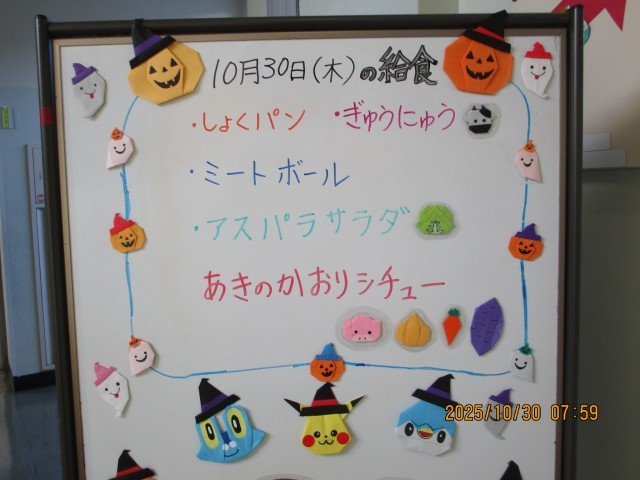 10月30日(木)の給食
・しょくパン ・ぎゅうにゅう
・ミートボール
・アスパラサラダ
あきのかおりシチュー
2025/10/30 07:59